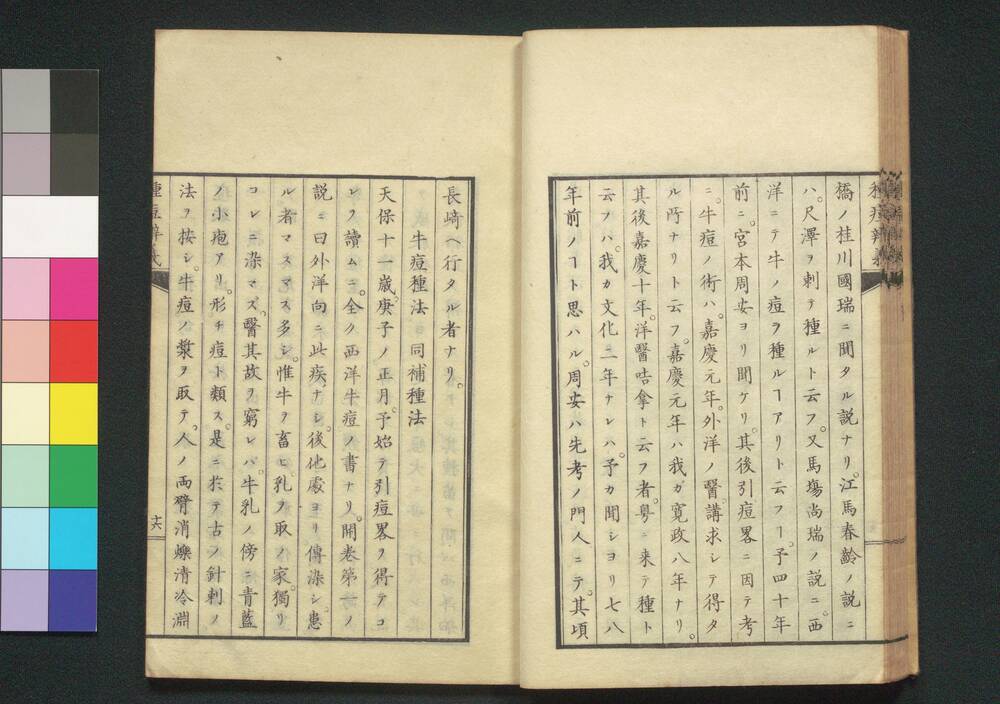 橋ノ桂川國瑞ニ聞タル説ナリ。江馬春齡ノ説ニ
ハ。尺澤ヲ刺テ種ルト云フ。又馬塲尚瑞ノ説ニ。西
洋ニテ牛ノ痘ヲ種ルヿアリト云フヿ。予四十年
前ニ。宮本周安ヨリ聞ケリ。其後引痘畧ニ因テ考
ニ。牛痘ノ術ハ。嘉慶元年。外洋ノ醫。講求シテ得タ
ル所ナリト云フ。嘉慶元年ハ我ガ寛政八年ナリ。
其後嘉慶十年。洋醫咭拿ト云フ者。粤ニ来テ種ト
云フハ。我カ文化二年ナレハ。予カ聞シヨリ七八
年前ノヿト思ハル。周安ハ先考ノ門人ニテ。其頃
長﨑ヘ行タル者ナリ。
牛痘種法 同補種法
天保十一歳。庚子ノ正月。予始テ引痘畧ヲ得テコ
レヲ讀ムニ。全ク西洋牛痘ノ書ナリ。開卷第一ノ
説ニ曰外洋向ニ此疾ナシ。後他處ヨリ傳染シ。患
ル者マスマス多シ。惟牛ヲ畜ヒ。乳ヲ取ノ家。獨リ
コレニ染マズ。醫其故ヲ窮レバ。牛乳ノ傍ニ青藍
ノ小疱アリ。形チ痘ト類ス。是ニ於テ古ノ針刺ノ
法ヲ按シ。牛痘ノ漿ヲ取テ。人ノ両臂消爍清冷淵
十六